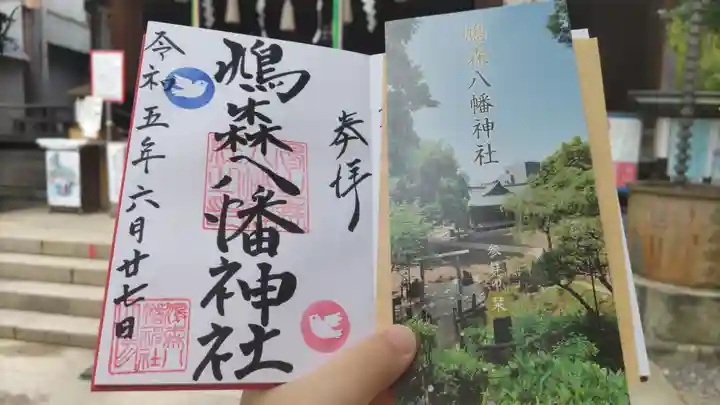 奉拝
鳩森八幡神社
令和五年六月廿七日
鳩森八幡神社
参拝の栞